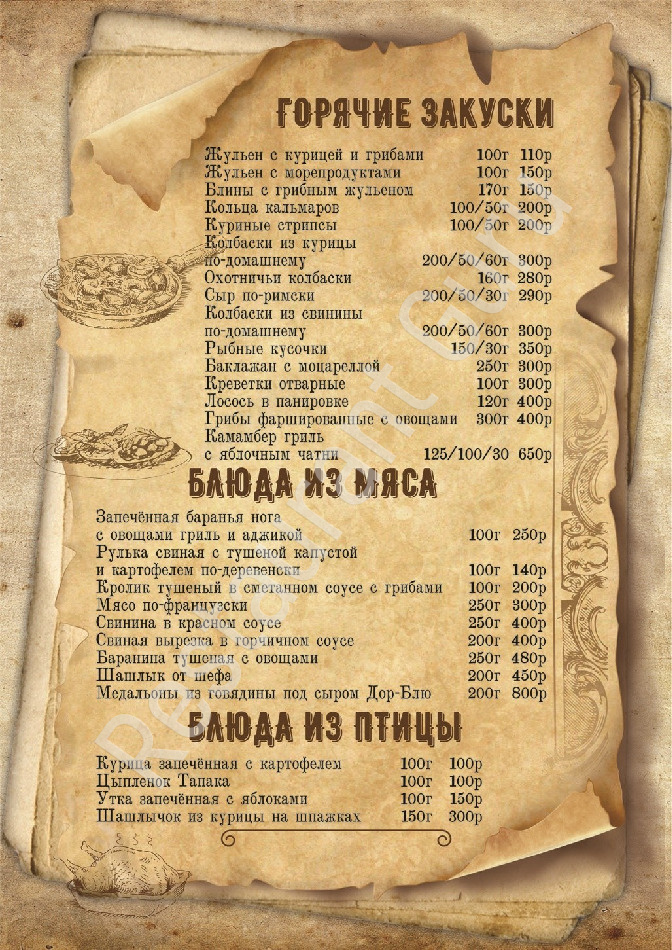 ГОРЯЧИЕ ЗАКУСКИ
Жульен с курицей и грибами 100г 110р
Жульен с морепродуктами 100г 150р
Блины с грибным жульеном 170г 150р
Кольца кальмаров 100/50г 200р
Куриные стрипсы 100/50г 200р
Колбаски из курицы
по-домашнему 200/50/60г 300р
Охотничьи колбаски 160г 280р
Сыр по-римски 200/50/30г 290р
Колбаски из свинины
по-домашнему 200/50/60г 300р
Рыбные кусочки 150/30г 350р
Баклажан с моцареллой 250г 300р
Креветки отварные 100г 300р
Лосось в панировке 120г 400р
Грибы фаршированные с овощами 300г 400р
Камамбер гриль
с яблочным чатни 125/100/30 650р
БЛЮДА ИЗ МЯСА
Запечённая баранья нога
с овощами гриль и аджикой 100г 250р
Рулька свиная с тушеной капустой
и картофелем по-деревенски 100г 140р
Кролик тушеный в сметанном соусе с грибами 100г 200р
Мясо по-французски 250г 300р
Свинина в красном соусе 250г 400р
Свиная вырезка в горчичном соусе 200г 400р
Баранина тушеная с овощами 250г 480р
Шашлык от шефа 200г 450р
Медальоны из говядины под сыром Дор-Блю 200г 800р
БЛЮДА ИЗ ПТИЦЫ
Курица запечённая с картофелем 100г 100р
Цыпленок Тапака 100г 100р
Утка запечённая с яблоками 100г 150р
Шашлычок из курицы на шпажках 150г 300р
Restaurant Guru